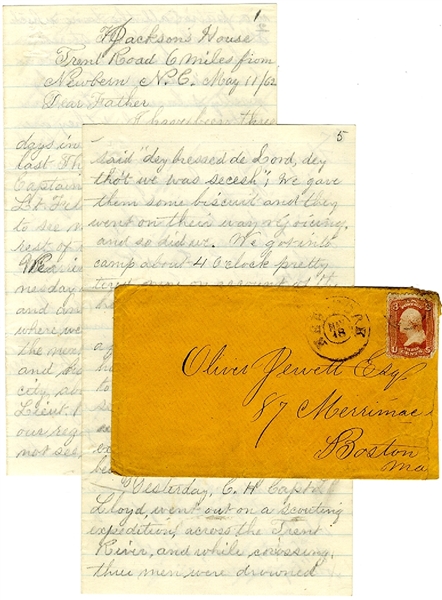 1
Jackson's House
Trent Road 6 miles from
Newbern N.C. May 11/62
Dear Father
I have been three
days in
last Th
Captain
Lt. F
to see m
rest of
We arriv
nesday
and an
where we
the mo
and
city, a
Lieut.
our reg
not see
5
said "dey bressed de Lord, dey
tho't we was secesh"; we gave
them some biscuit and they
went on their way rejoicing,
and so did we. We got into
camp about 4 O'clock pretty
tired
Yesterday, C. H Capt.
Lloyd, went out on a scouting
expedition across the Trent
River, and while crossing,
three men were drowned
NEW YORK
18
Oliver Jewett Esq
87 Merrimac
Boston
Ma